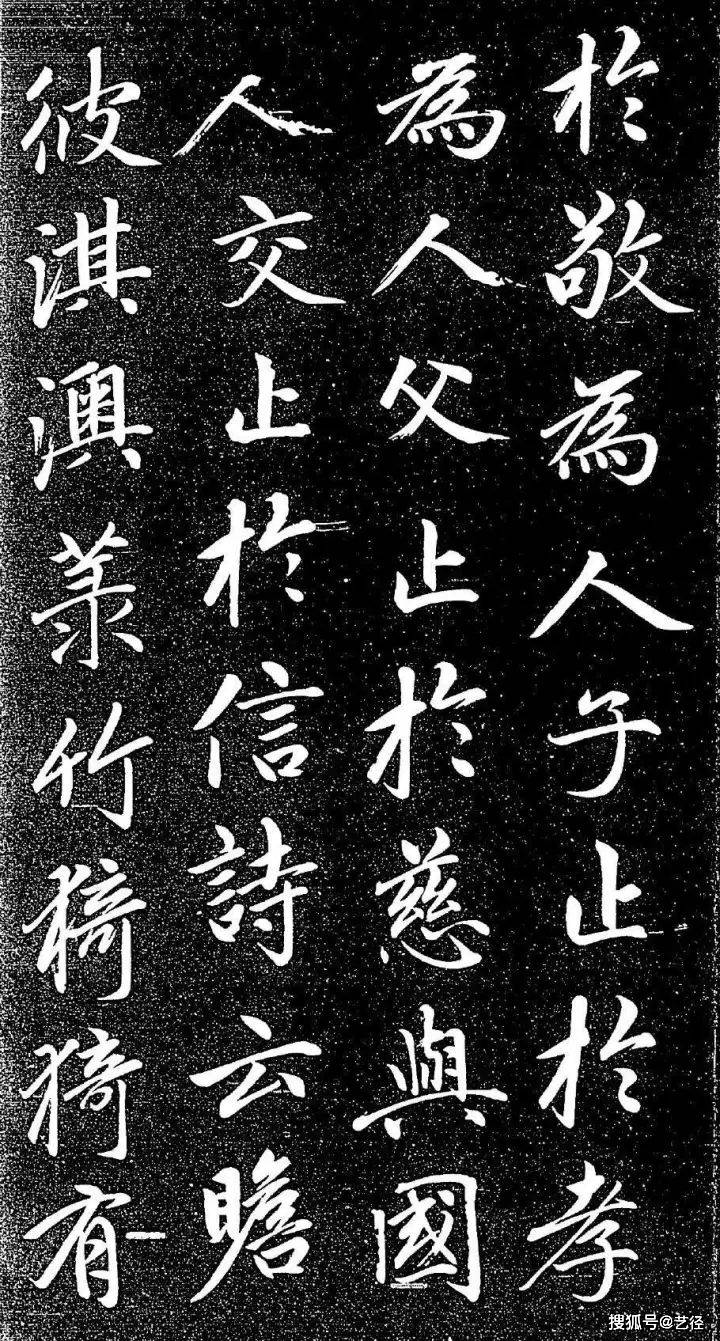 於敬為人子止於孝
為人父止於慈與國
人交止於信詩云瞻
彼淇澳菉竹猗猗有
搜狐号@艺径